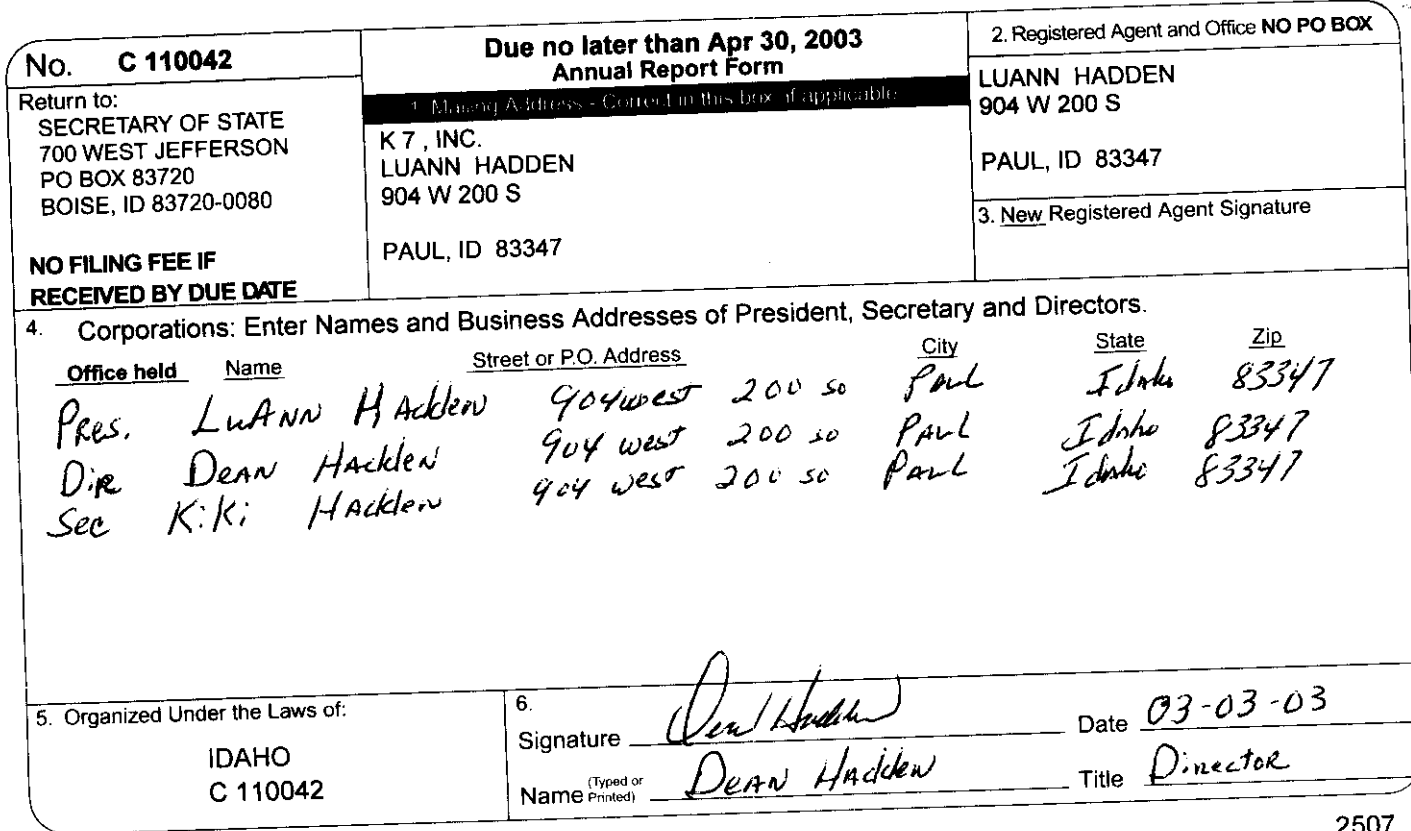 No. C 110042
Return to:
SECRETARY OF STATE
700 WEST JEFFERSON
PO BOX 83720
BOISE, ID 83720-0080
NO FILING FEE IF
RECEIVED BY DUE DATE
Due no later than Apr 30, 2003
Annual Report Form
1. Mailing Address - Correct in this box if applicable
K 7 , INC.
LUANN HADDEN
904 W 200 S
PAUL, ID 83347
2. Registered Agent and Office NO PO BOX
LUANN HADDEN
904 W 200 S
PAUL, ID 83347
3. New Registered Agent Signature
4. Corporations: Enter Names and Business Addresses of President, Secretary and Directors.
Office held Name Street or P.O. Address City State Zip
Pres. LuAnn Hadden 904 west 200 so Paul Idaho 83347
Dir Dean Hadden 904 west 200 so Paul Idaho 83347
Sec KiKi Hadden 904 west 200 so Paul Idaho 83347
5. Organized Under the Laws of:
IDAHO
C 110042
6.
Signature Dean Hadden Date 03-03-03
Name (Typed or Printed) Dean Hadden Title Director
2507